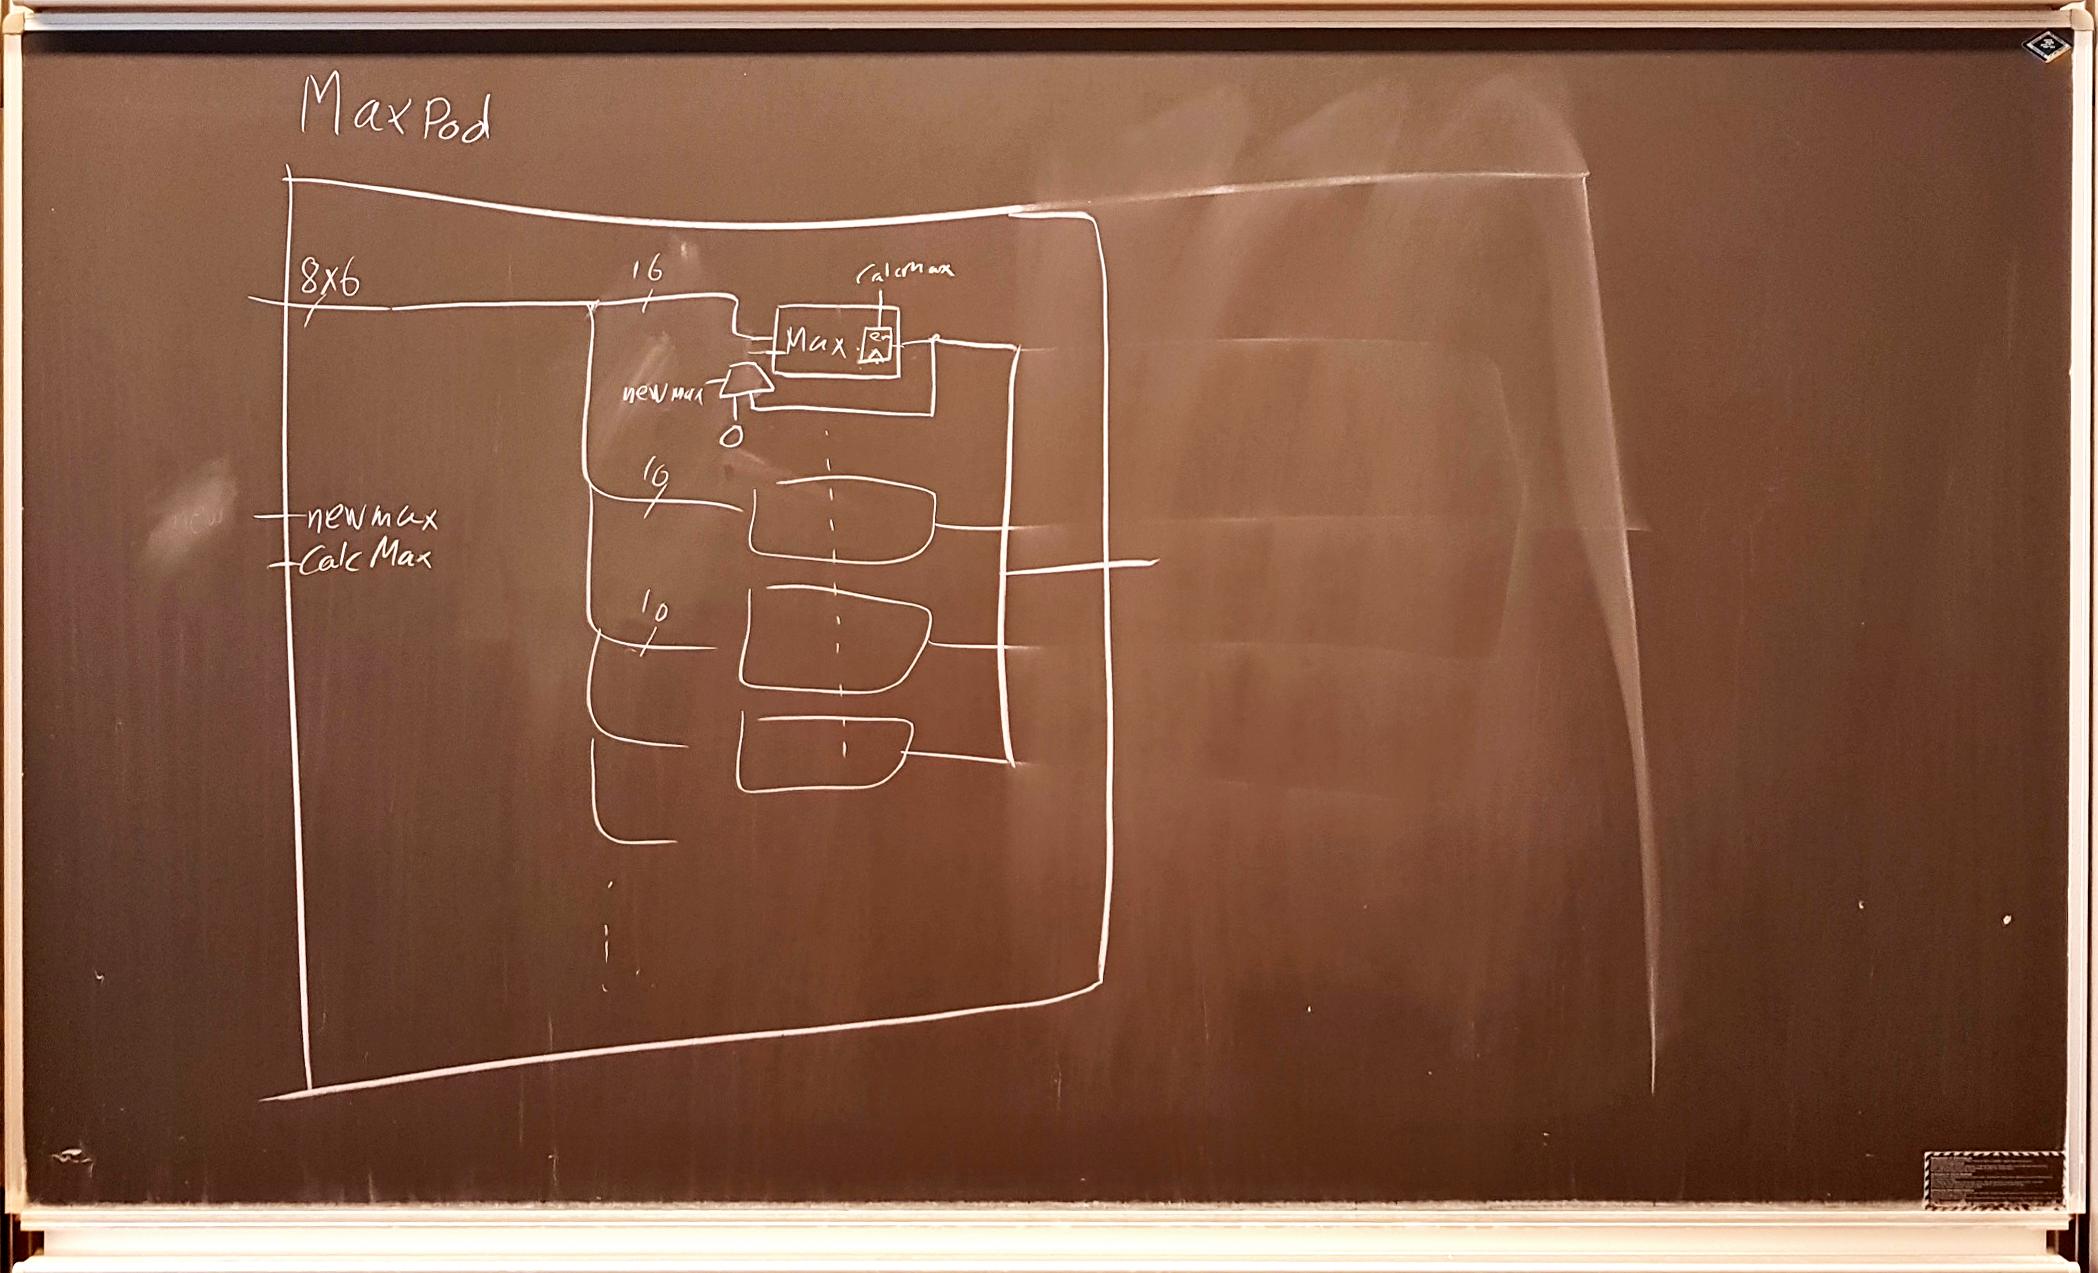 MaxPod
8x6
16
CalcMax
Max
en
newmax
0
16
newmax
CalcMax
10